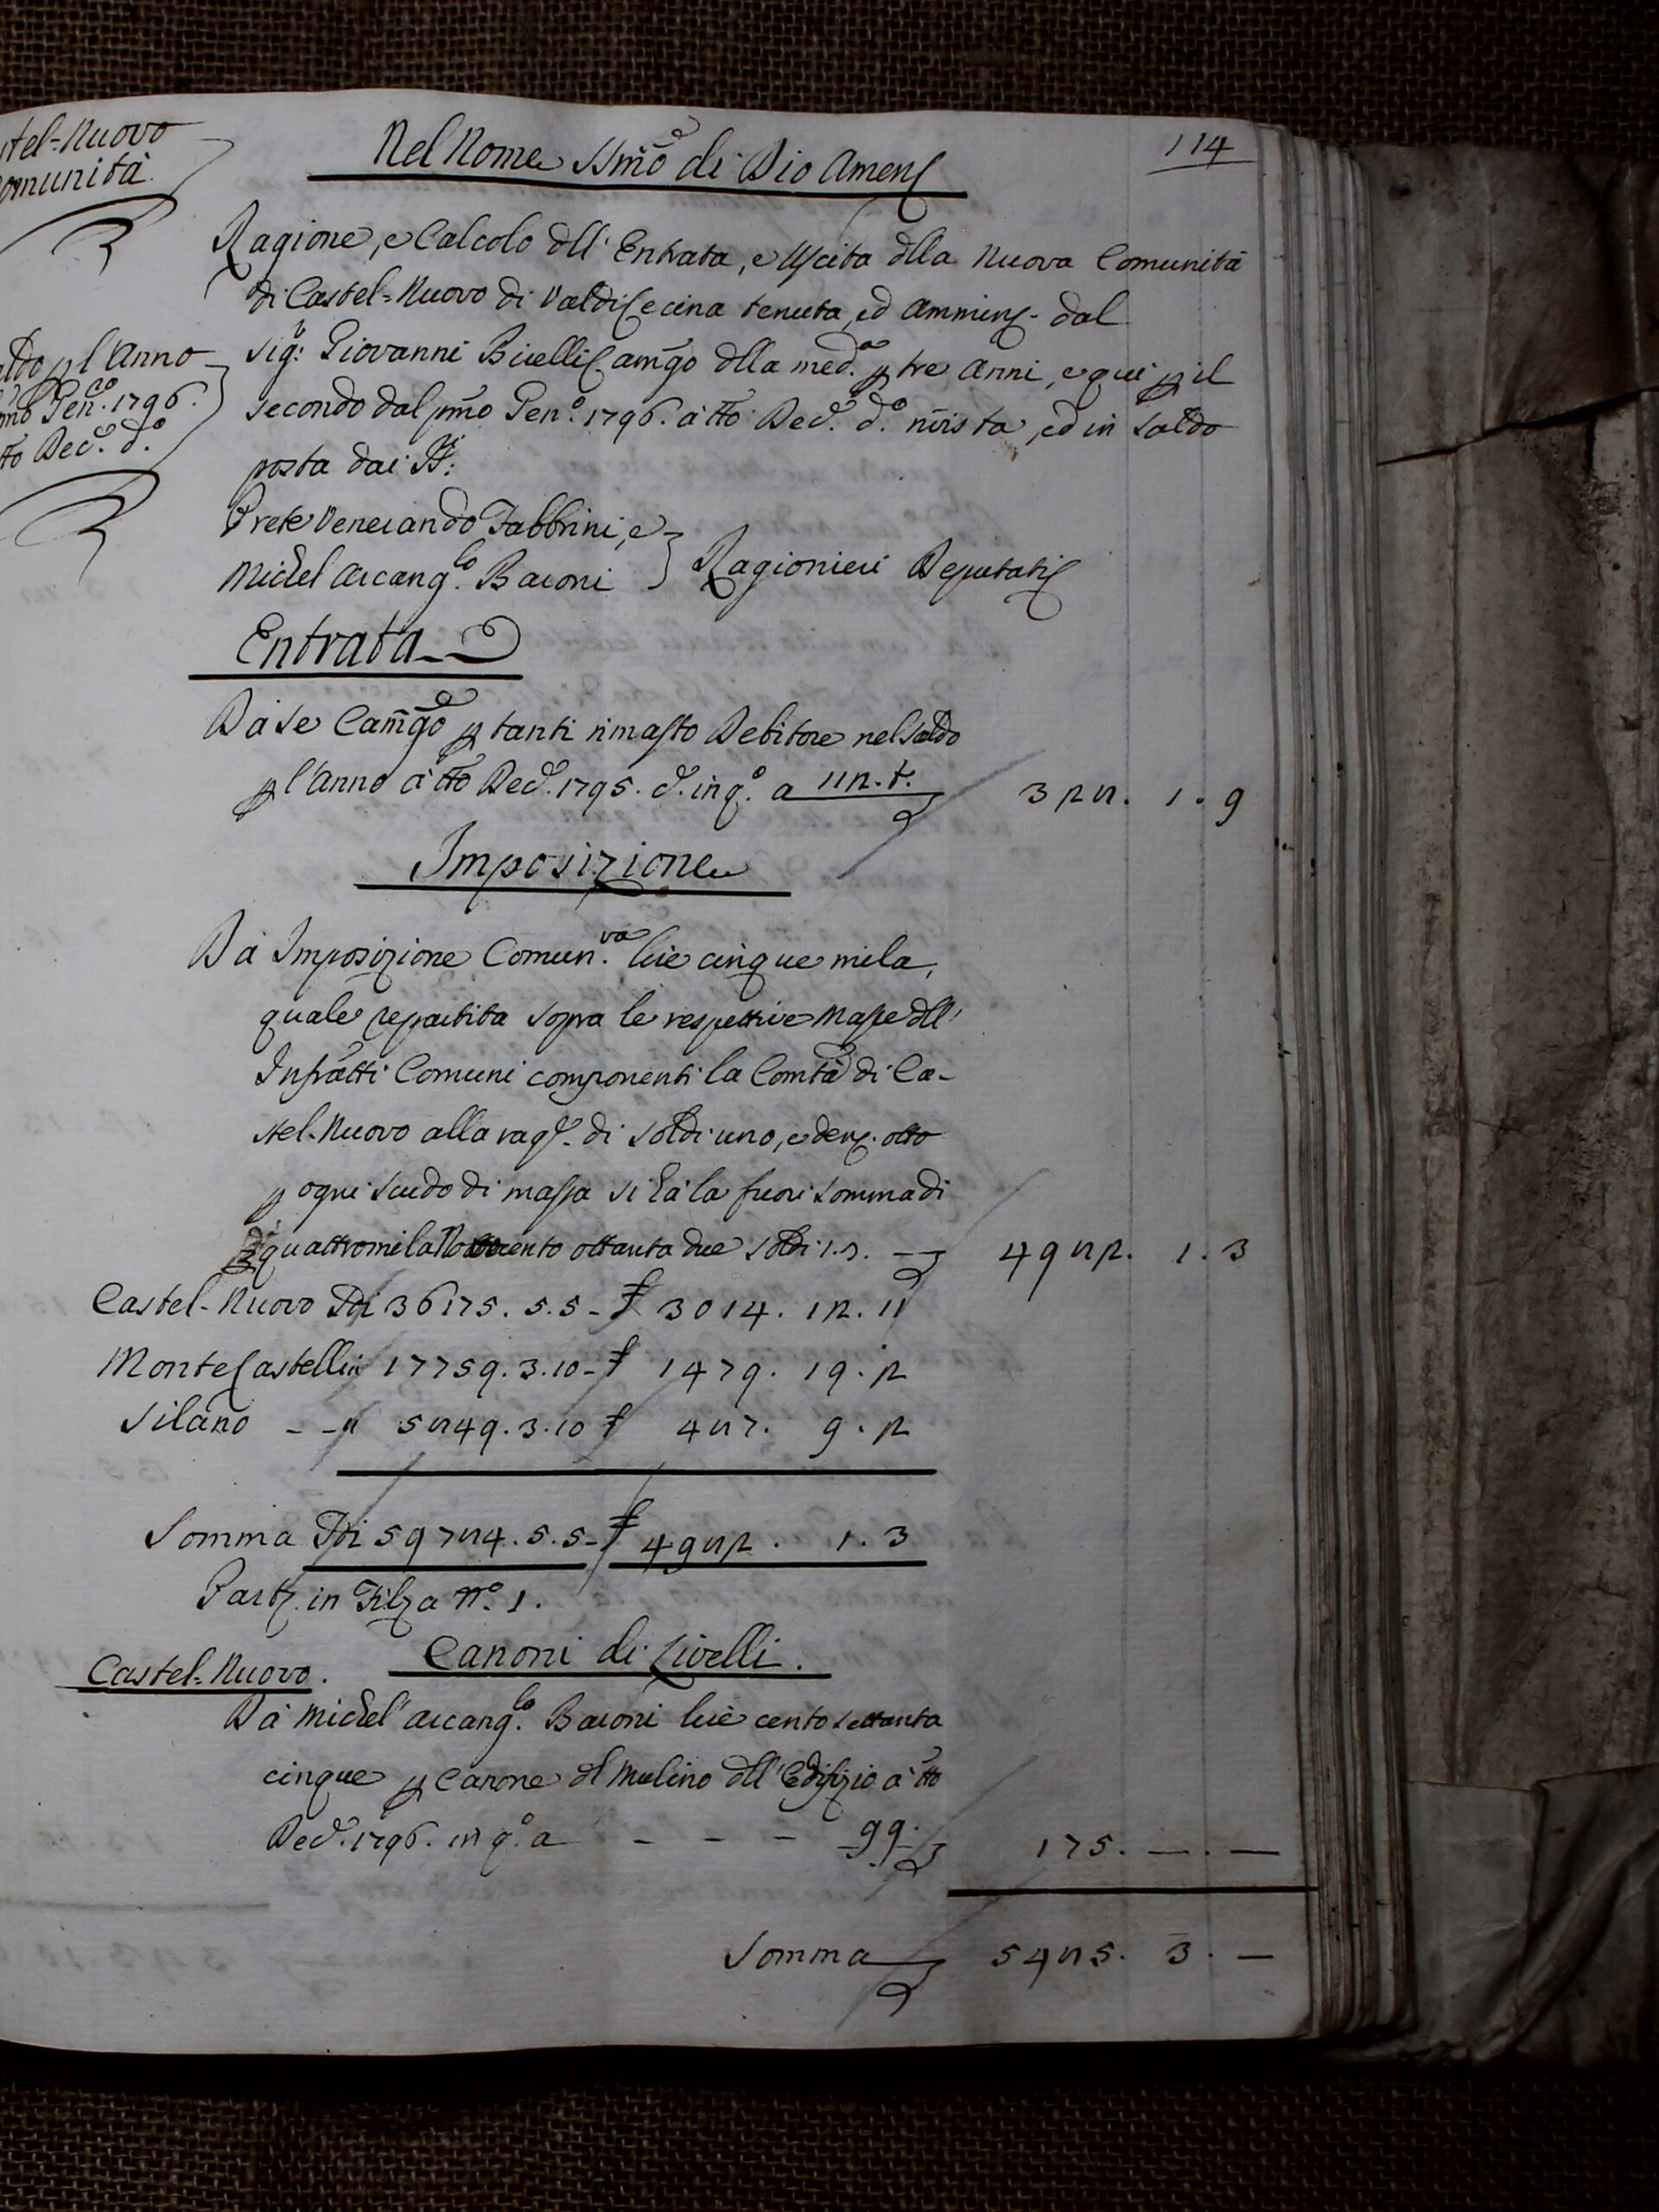 stel=Nuovo
omunità
114
Nel Nome SSm̃o di Dio Amen
Ragione, e Calcolo dll' Entrata, e Uscita dlla Nuova Comunità
di Castel=Nuovo di Valdicecina tenuta, ed Ammin. dal
Sig.r Giovanni Bicelli Cam̃go dlla med.a p tre Anni, e qui p il
secondo dal pm̃o Gen.o 1796. à tto Dec.e d.o m̃ista, ed in Saldo
posta dai SS.ri
ldo pl'Anno
mo Gen.o 1796.
tto Dec.e d.o
Prete Venerando Fabbrini, e
Michel Arcang.lo Baroni } Ragionieri Deputati
Entrata
Dà Se Cam̃go p tanti rimasto Debitore nel Saldo
pl'Anno à tto Dec.e 1795. d.o in q.o a 112.t. 328. 1. 9
Imposizione
Dà Imposizione Comun.va lire cinque mila,
quale repartita sopra le respettive Masse dll'
Infratti Comuni componenti la Comtà di Ca-
stel-Nuovo alla rag.e di Soldi uno, e den. otto
p ogni Scudo di massa si hà la fuori Somma di
quattromila Novecento ottanta due soldi 1.3. 4982. 1. 3
Castel-Nuovo Sdi 36175. 5. 5 - £ 3014. 12. 11
Monte Castelli 17759. 3. 10 - £ 1479. 19. 2
Silano - - 5849. 3. 10 £ 487. 9. 2
Somma Sdi 59784. 5. 5 - £ 4982. 1. 3
Part. in Filza N.o 1.
Canoni di Livelli.
Castel-Nuovo.
Dà Michel'Arcang.lo Baroni lire cento settanta
cinque p Canone dl Mulino dll'Edifizio à tto
Dec.e 1796. in q.o a - - - 99. 175. —. —
Somma 5485. 3. —